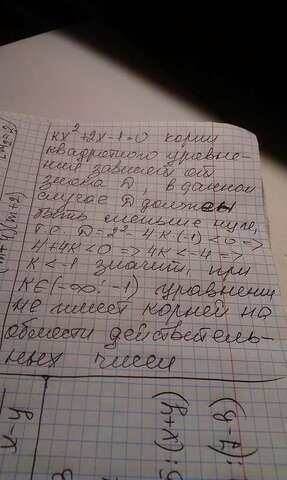 kx²+2x-1=0 корни
квадратного уравне-
ния зависят от
знака D, в данном
случае D должен
быть меньше нуля,
т.о. D=2²-4k·(-1)<0=>
4+4k<0=>4k<-4=>
k<-1 значит, при
k∈(-∞;-1) уравнение
не имеет корней на
области действитель-
ных чисел
x-y
5:(x+y)